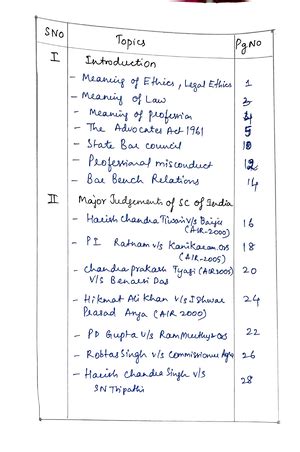 SNO Topics PgNo
I Introduction
- Meaning of Ethics, Legal Ethics 1
- Meaning of Law 3
- Meaning of profession 4
- The Advocates Act 1961 5
- State Bar council 10
- Professional misconduct 12
- Bar Bench Relations 14
II Major Judgements of SC of India
- Harish Chandra Tiwari v/s Baiju 16
(AIR-2002)
- PI Ratnam v/s Kanikaram.ors 18
(AIR-2005)
- Chandra prakash Tyagi (AIR2005) 20
v/s Benarsi Das
- Hikmat Ali Khan v/s Ishwar 24
Prasad Arya (AIR 2000)
- PD Gupta v/s Ram Murthy & ors 22
- Robtas Singh v/s Commissioner Agra 26
- Harish Chandra Singh v/s 28
SN Tripathi